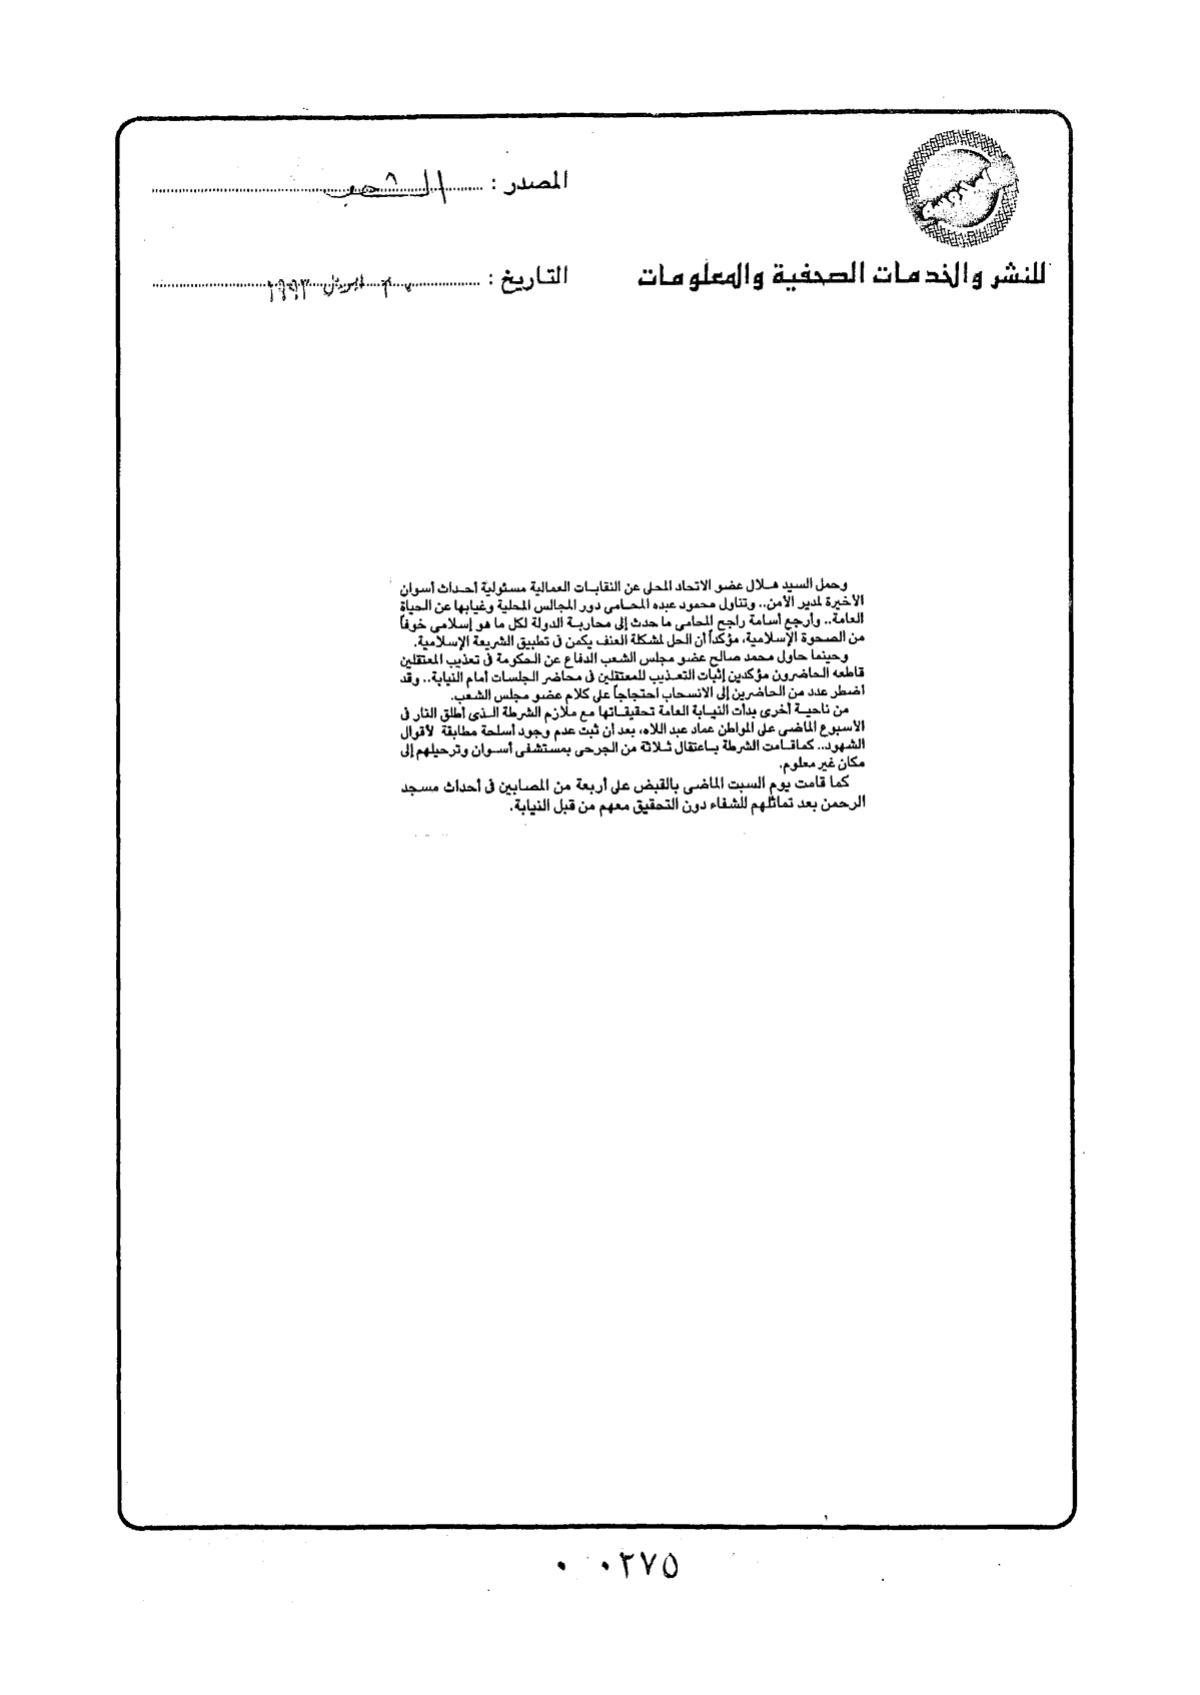 المصدر : الشعب
للنشر والخدمات الصحفية والمعلومات
التاريخ : ٢٠ ابريل ١٩٩٣
وحمل السيد هلال عضو الاتحاد المحلى عن النقابات العمالية مسئولية أحداث أسوان
الأخيرة لمدير الأمن.. وتناول محمود عبده المحامى دور المجالس المحلية وغيابها عن الحياة
العامة.. وأرجع أسامة راجح المحامى ما حدث إلى محاربة الدولة لكل ما هو إسلامى خوفاً
من الصحوة الإسلامية، مؤكداً أن الحل لمشكلة العنف يكمن فى تطبيق الشريعة الإسلامية.
وحينما حاول محمد صالح عضو مجلس الشعب الدفاع عن الحكومة فى تعذيب المعتقلين
قاطعه الحاضرون مؤكدين إثبات التعذيب للمعتقلين فى محاضر الجلسات أمام النيابة.. وقد
أضطر عدد من الحاضرين إلى الانسحاب احتجاجاً على كلام عضو مجلس الشعب.
من ناحية أخرى بدأت النيابة العامة تحقيقاتها مع ملازم الشرطة الذى أطلق النار فى
الأسبوع الماضى على المواطن عماد عبد اللاه، بعد أن ثبت عدم وجود أسلحة مطابقة لأقوال
الشهود.. كما قامت الشرطة باعتقال ثلاثة من الجرحى بمستشفى أسوان وترحيلهم إلى
مكان غير معلوم.
كما قامت يوم السبت الماضى بالقبض على أربعة من المصابين فى أحداث مسجد
الرحمن بعد تماثلهم للشفاء دون التحقيق معهم من قبل النيابة.
٠٠٢٧٥